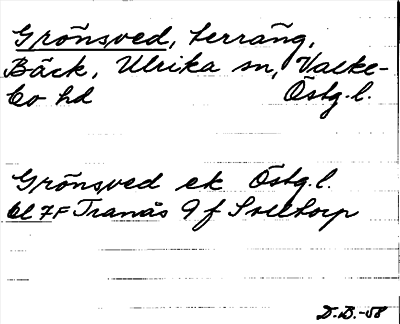 Grönsved, terräng,
Bäck, Ulrika sn, Valke-
bo hd Östg.l.
Grönsved ek Östg.l.
bl 7F Tranås 9 f Sveltorp
D.B.-58